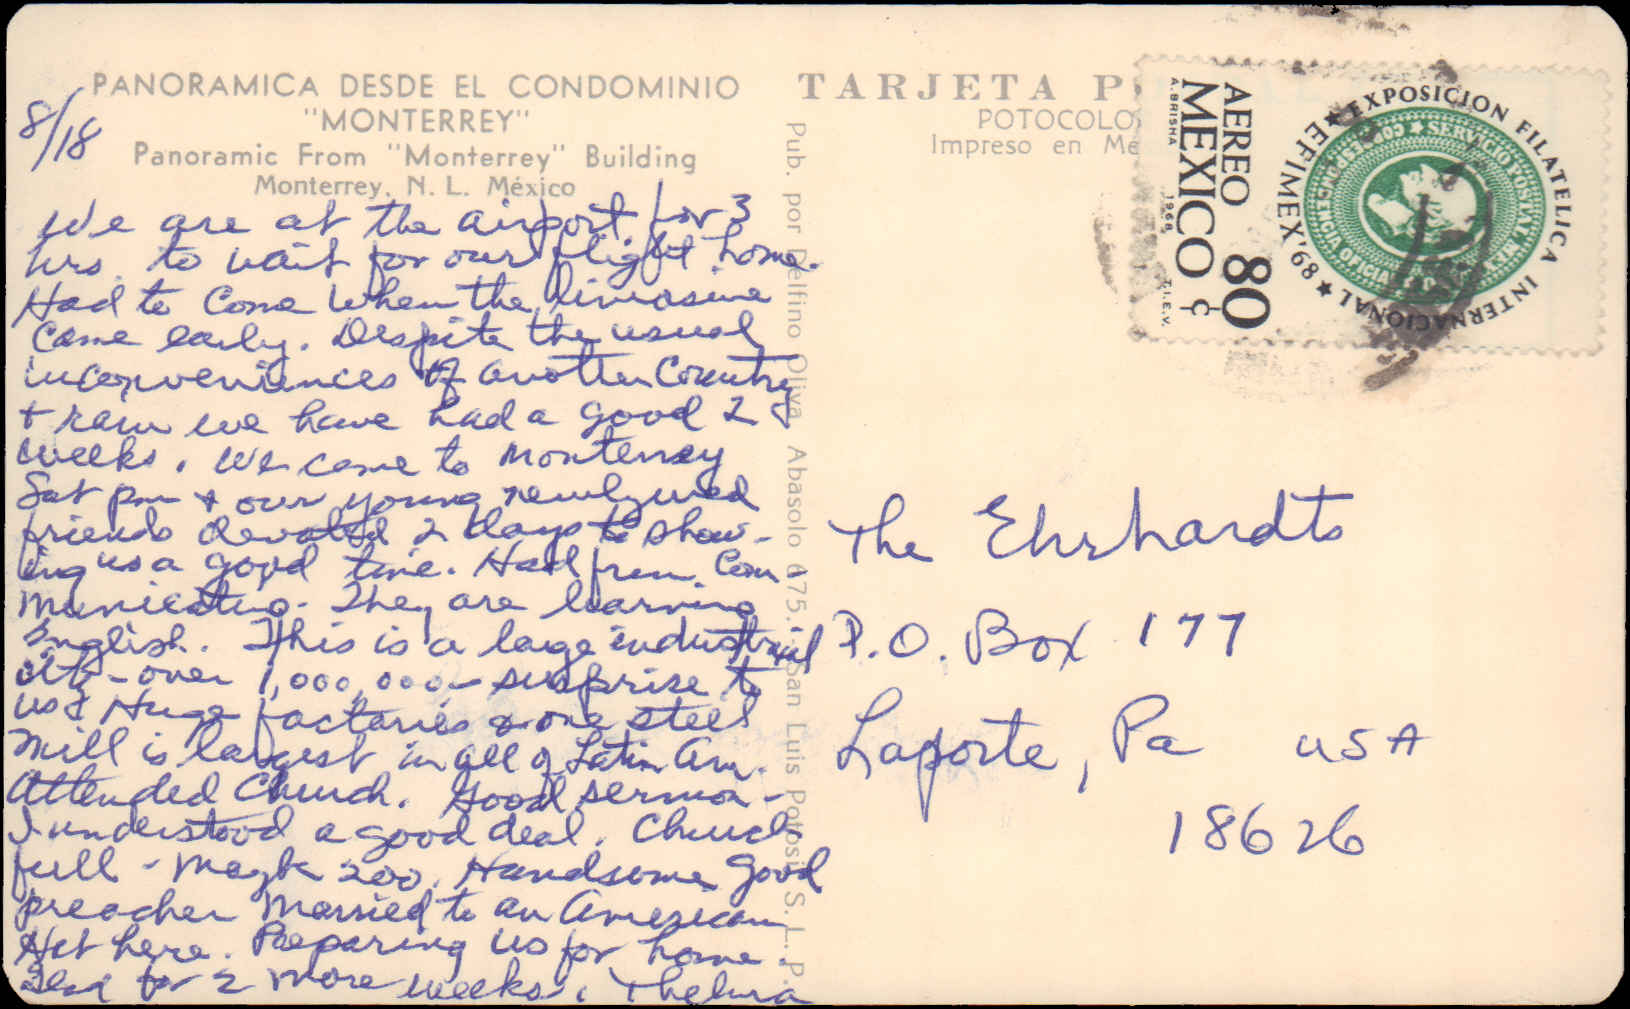 PANORAMICA DESDE EL CONDOMINIO
"MONTERREY"
Panoramic From "Monterrey" Building
Monterrey, N. L. México
8/18
We are at the airport for 3
hrs. to wait for our flight home.
Had to come when the limosine
came early. Despite the usual
inconveniences of another country
+ rain we have had a good 2
weeks. We came to Monterrey
Sat pm + our young newlywed
friends devoted 2 days to show-
ing us a good time. Had fun com-
municating. They are learning
English. This is a large industrial
city - over 1,000,000 - surprise to
us & Huge factories & one steel
mill is largest in all of Latin Am.
Attended Church. Good sermon -
I understood a good deal. Church
full - maybe 200. Handsome good
preacher married to an American
Hot here. Preparing us for home.
for 2 more weeks. Thelma
TARJETA P
POTOCOLO
Impreso en Mé
Pub. por Delfino Oliva Abasolo 675. San Luis Potosi, S. L. P.
AEREO 80
MEXICO ¢
A. BRISHA 1968 T.I.E.V.
EXPOSICION FILATELICA INTERNACIONAL ★ EFIMEX'68 ★
SERVICIO POSTAL MEXICANO
The Ehrhardts
P.O. Box 177
Laporte, Pa USA
18626